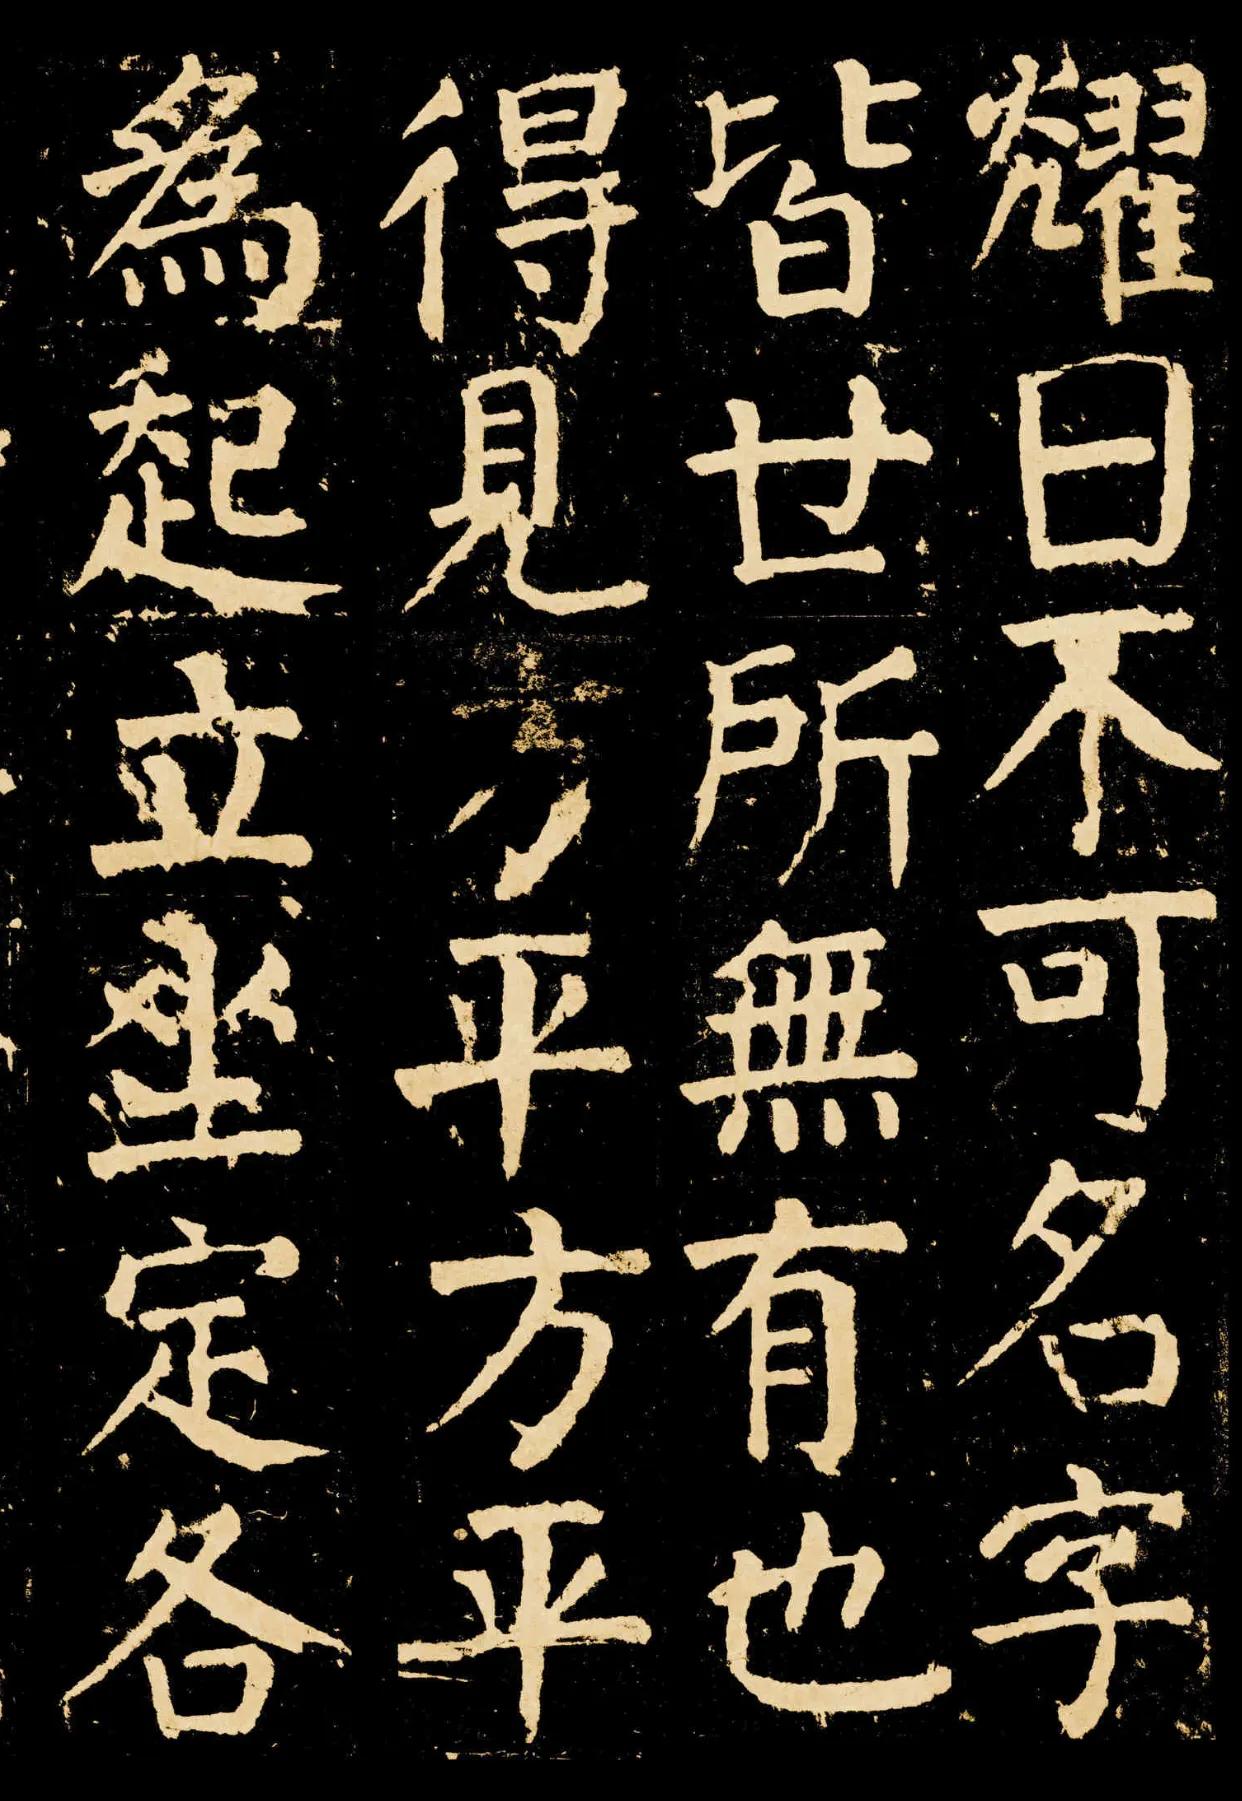 耀日不可名字
皆世所無有也
得見方平方平
爲起立坐定各